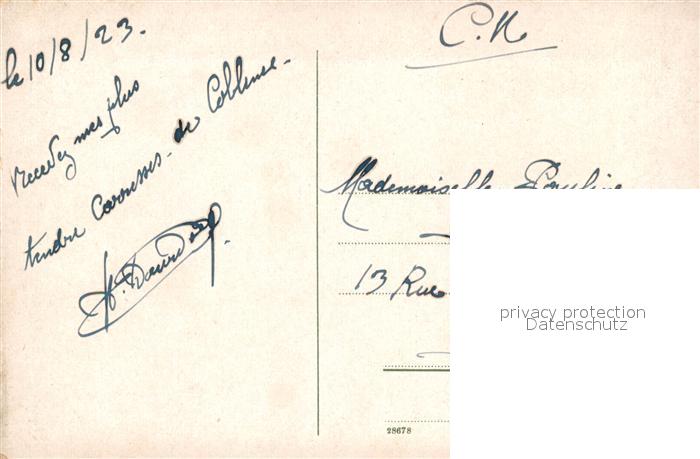 le 10/8/23.
C.M
recevez mes plus
tendre Caresses de Coblense.
Mademoiselle Pauline
13 Rue
28678
privacy protection
Datenschutz